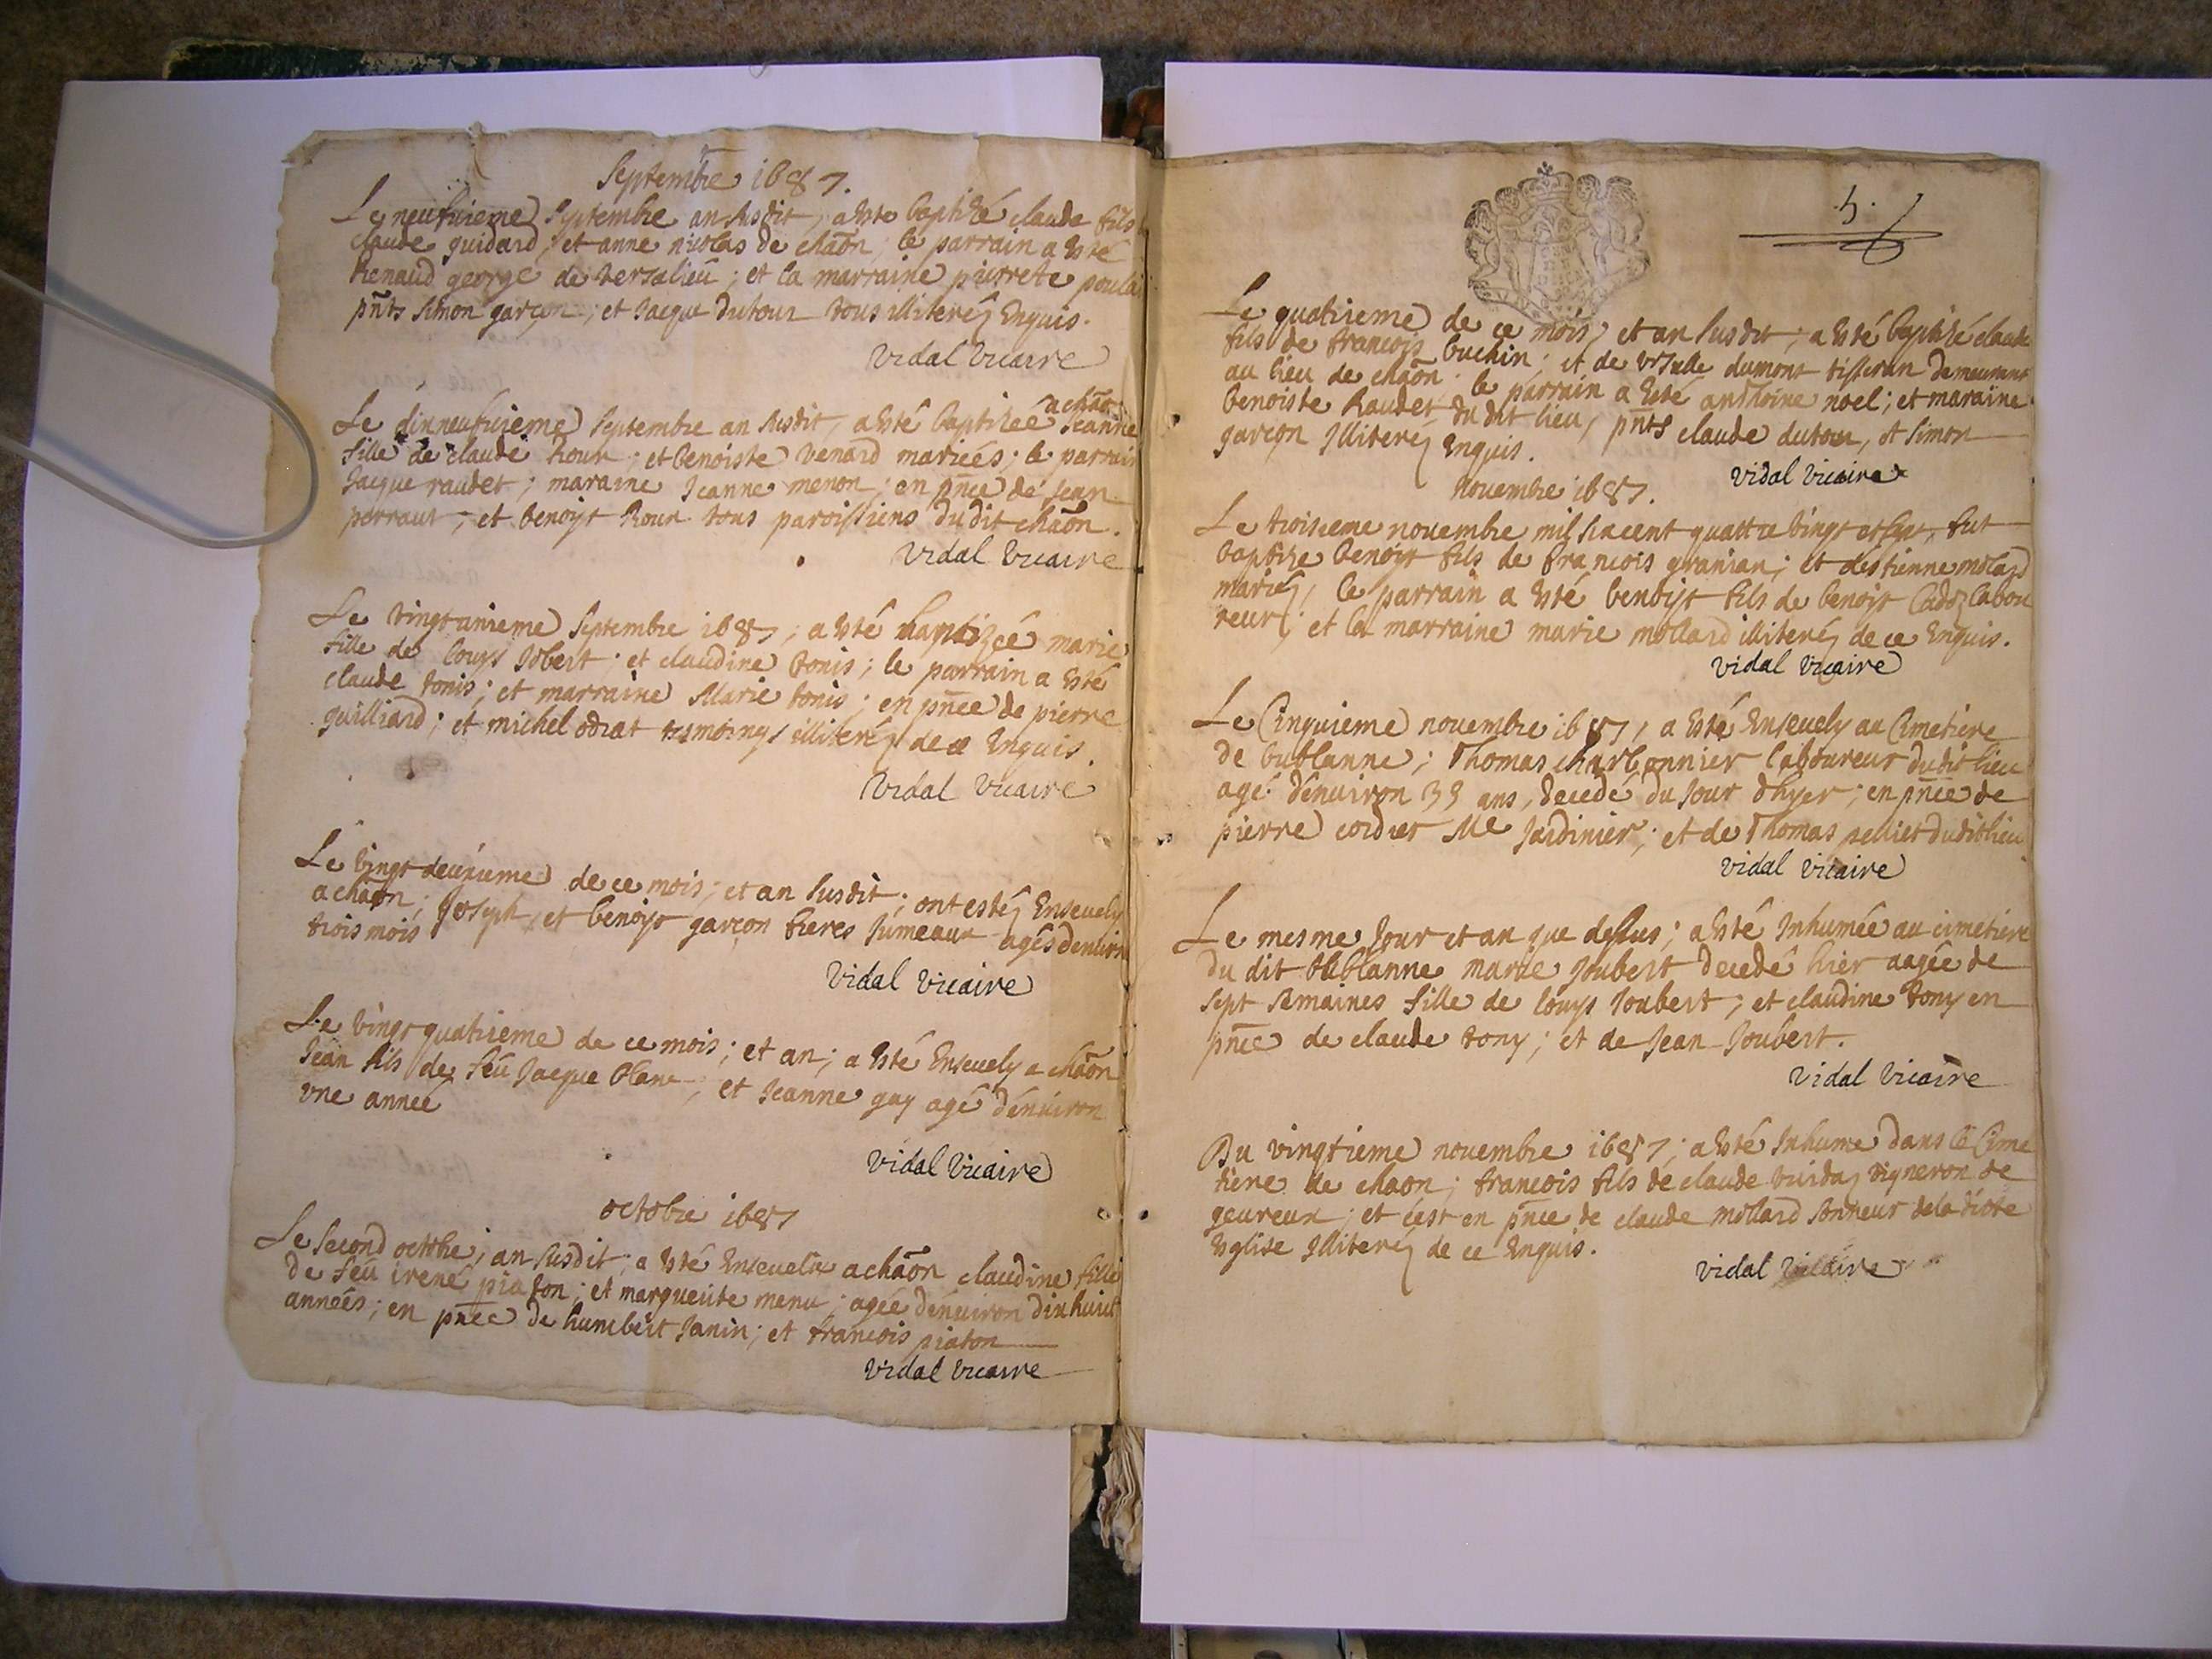 Septembre 1687.
Le neufvieme Septembre an susdit, a esté baptizé claude fils
claude guidard, et anne nicolas de chaõn; le parrain a esté
Renaud george de versalieu; et la marraine pierrete
pñts simon garçon; et Jacque dutour tous illiterés Enquis.
Vidal vicaire
Le dixneufvieme Septembre an susdit, a esté baptizée a chaõn Jeanne
fille de claude Roux; et benoiste venard mariées; le parrain
Jacque raudet; maraine Jeanne menon; en pñce de Jean
perraut; et benoist Roux tous paroissiens du dit chaõn.
Vidal vicaire
Le vingtunieme Septembre 1687; a esté baptizée marie
fille de louys Jobert; et claudine tonis; le parrain a esté
claude tonis; et marraine Marie tonis; en pñce de pierre
guilliard; et michel odrat tesmoings illiterés de ce Enquis.
Vidal vicaire
Le vingt deuxieme de ce mois; et an susdit; ont estés Ensevely
a chaõn; Joseph, et benoist garçon freres Jumeaux agés denviron
trois mois
Vidal vicaire
Le vingt quatrieme de ce mois; et an; a esté Ensevely a chaõn
Jean fils de feu Jacque blanc, et Jeanne guy agé dénviron
vne année
Vidal vicaire
octobre 1687
Le second octobre; an susdit; a esté Ensevelie a chaõn claudine fille
de feu irené piaton; et marguerite menu; agée dénviron dixhuict
années; en pñce de humbert Janin; et francois piaton
Vidal vicaire
5.
Le quatrieme de ce mois, et an susdit; a esté baptizé claude
fils de francois buchin; et de vrsulle dumont tisseran demeurant
au lieu de chaõn. le parrain a esté anthoine noel; et maraine
benoiste Raudet du dit lieu, pñts claude dutour, et simon
garçon Illiterés Enquis.
Vidal vicaire
novembre 1687.
Le troisieme novembre mil sixcent quattre vingt et sept, fut
baptize benoist fils de francois granjan; et déstienne molard
mariés, le parrain a esté benoist fils de benoist labou
reur; et la marraine marie mollard illiterés de ce Enquis.
vidal vicaire
Le Cinquieme novembre 1687, a esté Ensevely au Cimetiere
de bublanne; Thomas charbonnier laboureur dudit lieu
agé dénviron 39 ans, decedé du Jour dhyer; en pñce de
pierre cordier Me Jardinier; et de Thomas pellict dudit lieu
vidal vicaire
Le mesme Jour et an que dessus; a esté Inhumée au cimetiere
du dit bublanne marie Joubert decedé hier aagée de
sept semaines fille de louys Joubert; et claudine tony en
pñce de claude tony; et de Jean Joubert.
vidal vicaire
Du vingtieme novembre 1687; a esté Inhume dans le Cime
tiere de chaon; francois fils de claude vigneron de
geureux; et cest en pñce de claude mollard sonneur de la dicte
Eglise Illiterés de ce Enquis.
vidal vicaire